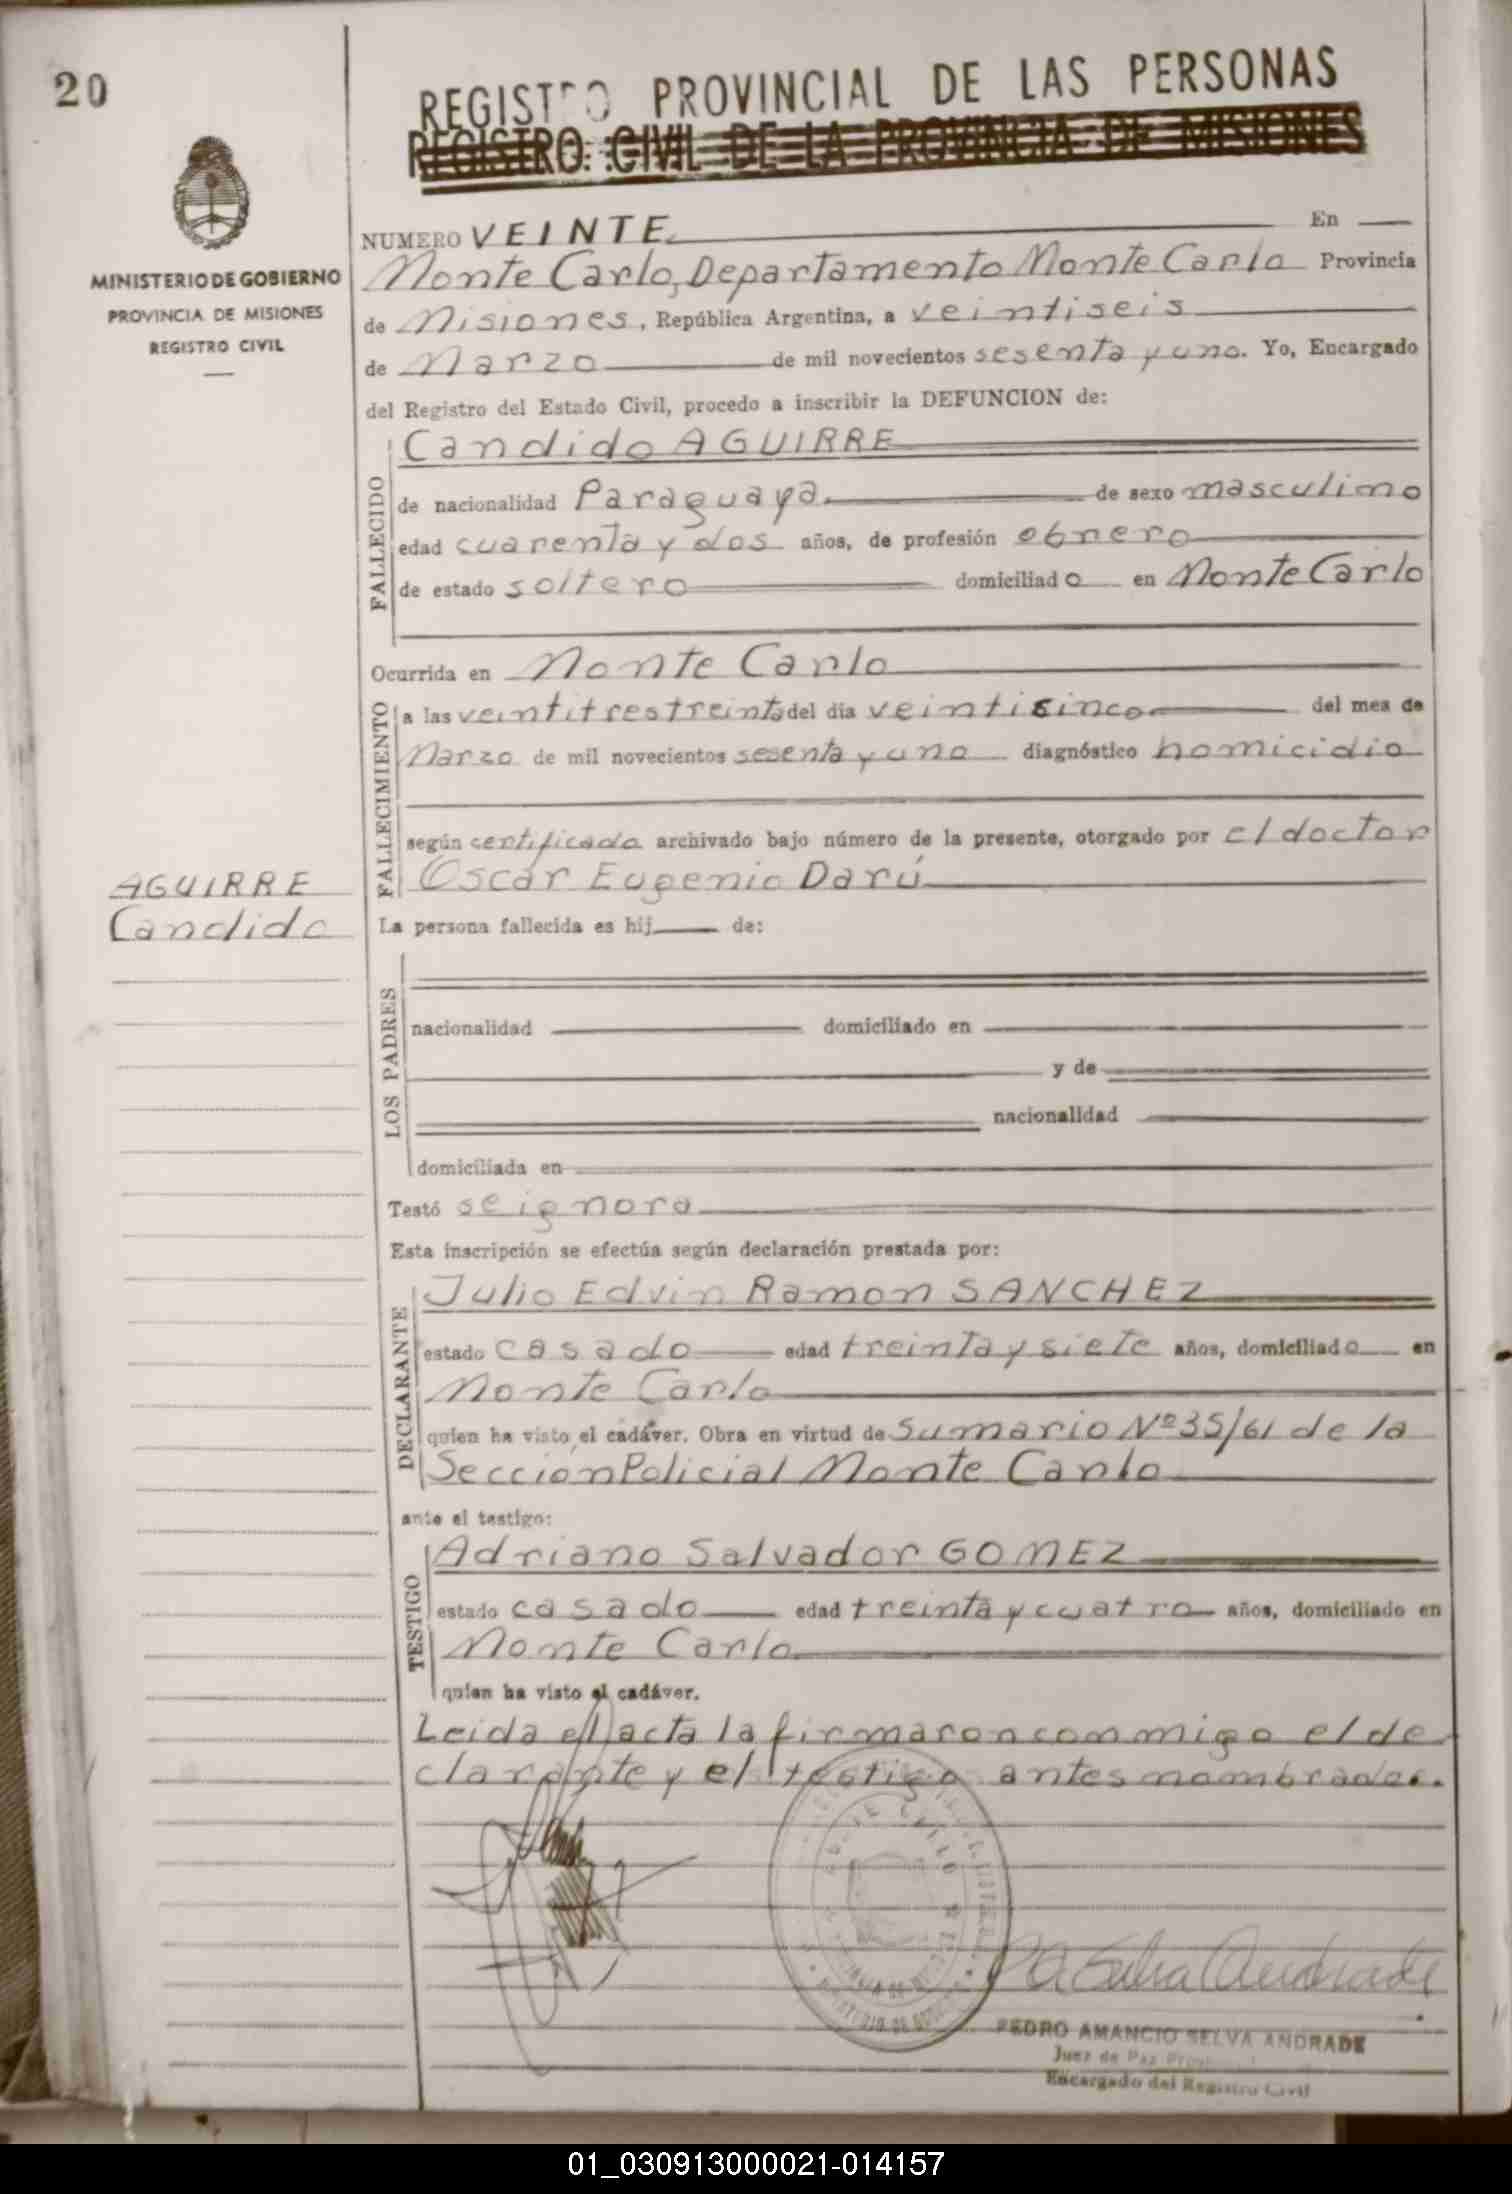 20
REGISTRO PROVINCIAL DE LAS PERSONAS
REGISTRO CIVIL DE LA PROVINCIA DE MISIONES
MINISTERIO DE GOBIERNO
PROVINCIA DE MISIONES
REGISTRO CIVIL
NUMERO VEINTE En
Monte Carlo, Departamento Monte Carlo Provincia
de Misiones, República Argentina, a veintiseis
de Marzo de mil novecientos sesenta y uno. Yo, Encargado
del Registro del Estado Civil, procedo a inscribir la DEFUNCION de:
FALLECIDO
Candido AGUIRRE
de nacionalidad Paraguaya. de sexo masculino
edad cuarenta y dos años, de profesión obrero
de estado soltero domiciliado en Monte Carlo
Ocurrida en Monte Carlo
FALLECIMIENTO
a las veintitres treinta del día veinticinco del mes de
Marzo de mil novecientos sesenta y uno diagnóstico homicidio
según certificado archivado bajo número de la presente, otorgado por el doctor
Oscar Eugenio Darú
AGUIRRE
Candido
La persona fallecida es hij de:
LOS PADRES
nacionalidad domiciliado en
y de
nacionalidad
domiciliada en
Testó se ignora
Esta inscripción se efectúa según declaración prestada por:
DECLARANTE
Julio Edvin Ramon SANCHEZ
estado casado edad treinta y siete años, domiciliado en
Monte Carlo
quien ha visto el cadáver. Obra en virtud de Sumario Nº 35/61 de la
Seccion Policial Monte Carlo
ante el testigo:
TESTIGO
Adriano Salvador GOMEZ
estado casado edad treinta y cuatro años, domiciliado en
Monte Carlo
quien ha visto el cadáver.
Leida el acta la firmaron conmigo el de
clarante y el testigo antes nombrados.
P A Selva Andrade
PEDRO AMANCIO SELVA ANDRADE
Juez de Paz
Encargado del Registro Civil
01_030913000021-014157